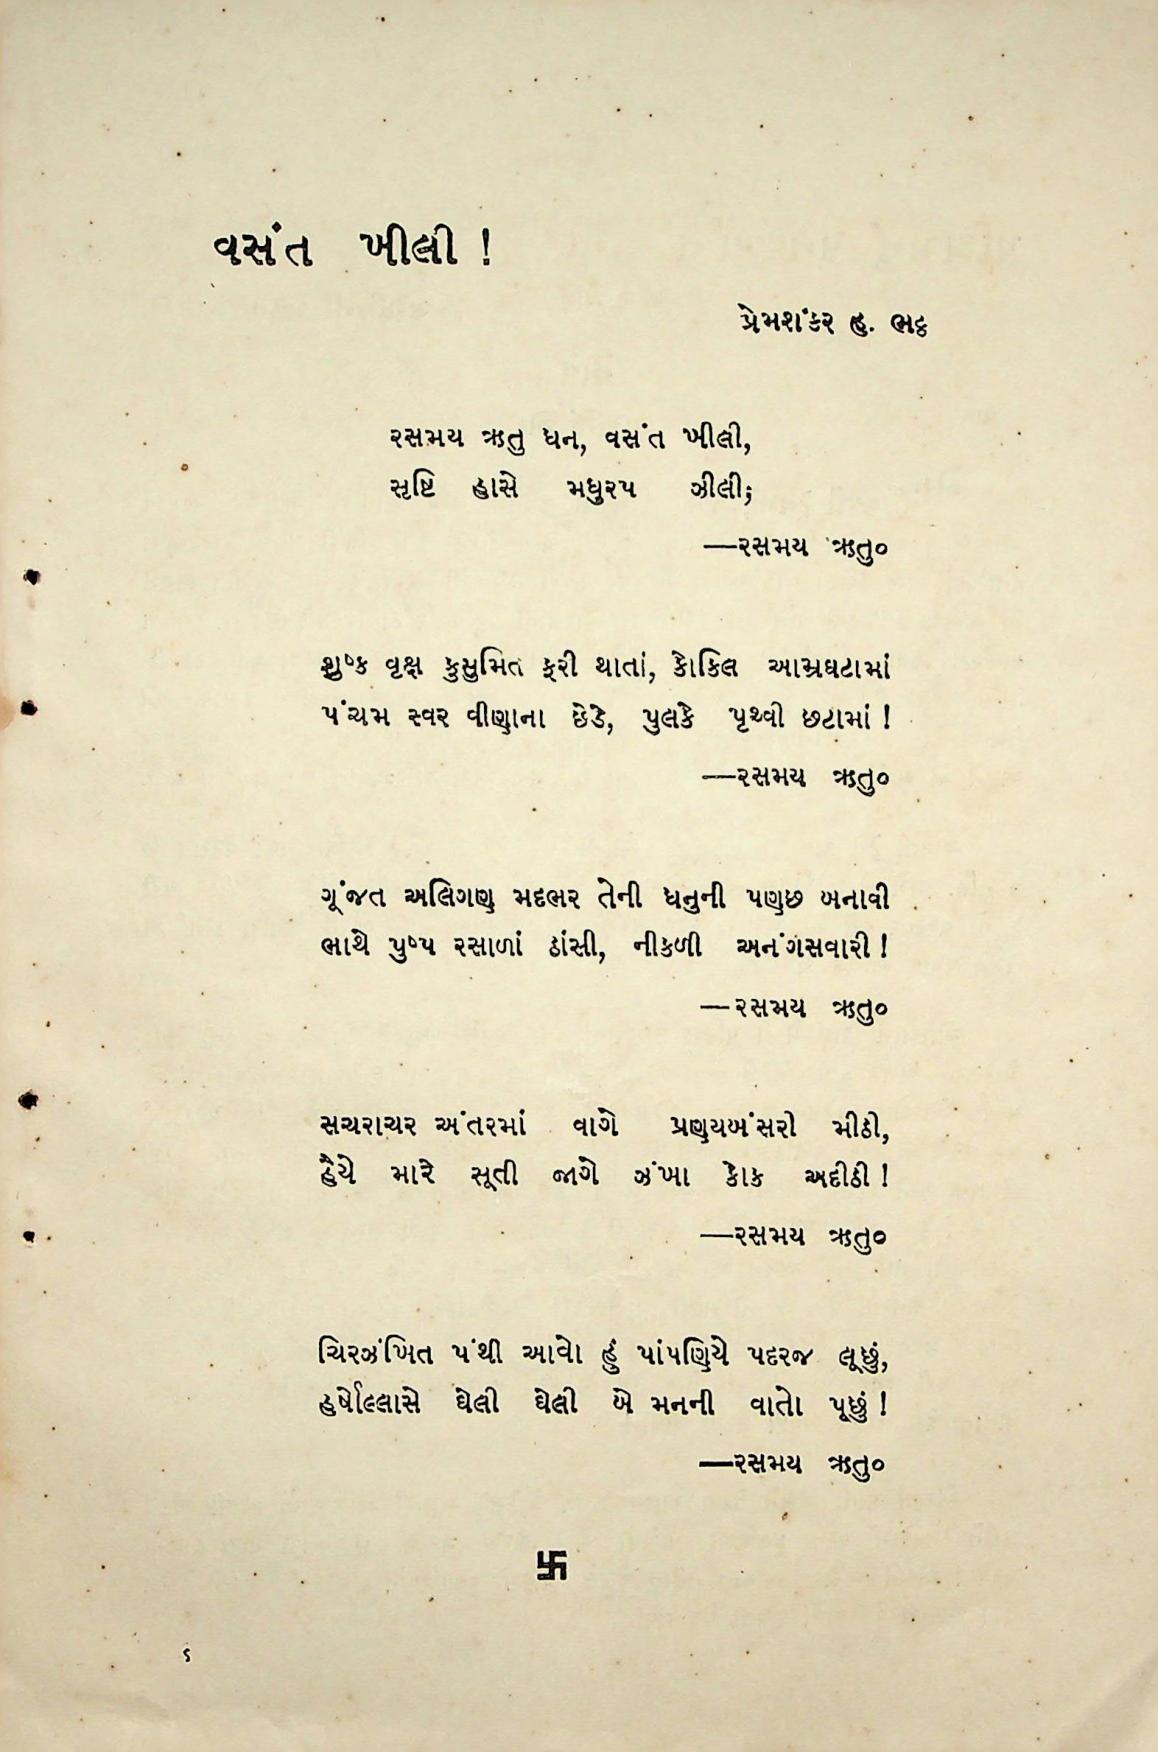 વસંત ખીલી !
પ્રેમશંકર હ. ભટ્ટ
રસમય ઋતુ ધન, વસંત ખીલી,
સૃષ્ટિ હાસે મધુરપ ઝીલી;
—રસમય ઋતુ૦
શુષ્ક વૃક્ષ કુસુમિત ફરી થાતાં, કોકિલ આમ્રઘટામાં
પંચમ સ્વર વીણાના છેડે, પુલકે પૃથ્વી છટામાં !
—રસમય ઋતુ૦
ગૂંજત અલિગણ મદભર તેની ધનુની પણછ બનાવી
ભાથે પુષ્પ રસાળાં ઠાંસી, નીકળી અનંગસવારી !
—રસમય ઋતુ૦
સચરાચર અંતરમાં વાગે પ્રણયબંસરી મીઠી,
હૈયે મારે સૂતી જાગે ઝંખા કોક અદીઠી !
—રસમય ઋતુ૦
ચિરઝંખિત પંથી આવો હું પાંપણિયે પદરજ લૂછું,
હર્ષોલ્લાસે ઘેલી ઘેલી બે મનની વાતો પૂછું !
—રસમય ઋતુ૦
卐
૬